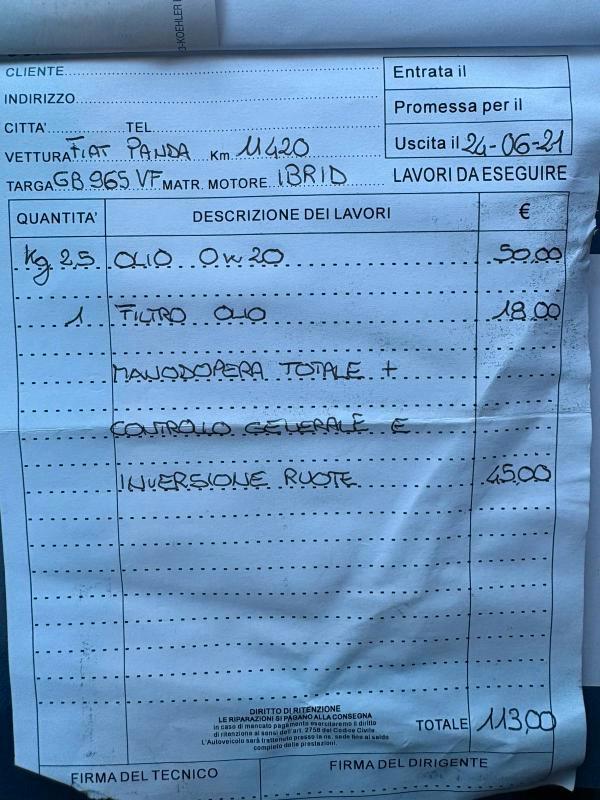 O-KOEHLER
CLIENTE
INDIRIZZO
CITTA' TEL
VETTURA FIAT PANDA Km 11420
TARGA GB965VF MATR. MOTORE IBRID
Entrata il
Promessa per il
Uscita il 24-06-21
LAVORI DA ESEGUIRE
QUANTITA' DESCRIZIONE DEI LAVORI €
Kg 2,5 OLIO 0W20 50,00
1 FILTRO OLIO 18,00
MANODOPERA TOTALE +
CONTROLLO GENERALE E
INVERSIONE RUOTE 45,00
DIRITTO DI RITENZIONE
LE RIPARAZIONI SI PAGANO ALLA CONSEGNA
in caso di mancato pagamento eserciteremo il diritto
di ritenzione ai sensi dell'art. 2756 del Codice Civile.
L'Autoveicolo sarà trattenuto presso la ns. sede fino al saldo
completo delle prestazioni.
TOTALE 113,00
FIRMA DEL TECNICO FIRMA DEL DIRIGENTE